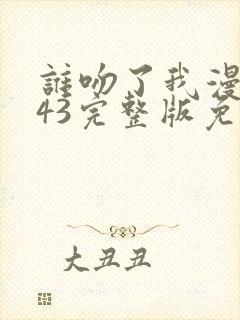 誰吻了我漫
43完整版免
大丑丑